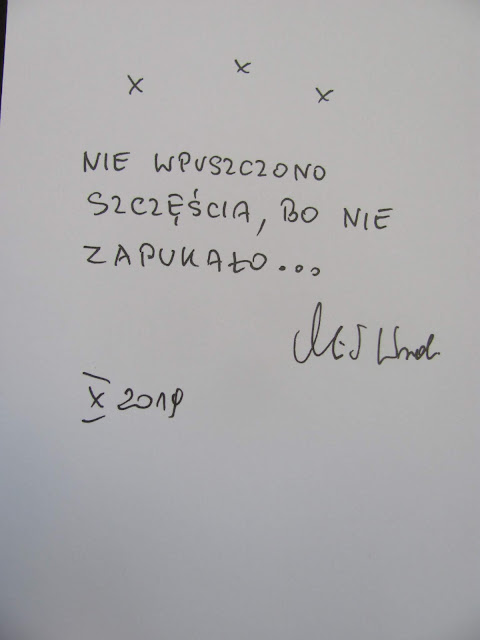 x x x
NIE WPUSZCZONO
SZCZĘŚCIA, BO NIE
ZAPUKAŁO...
X 2019